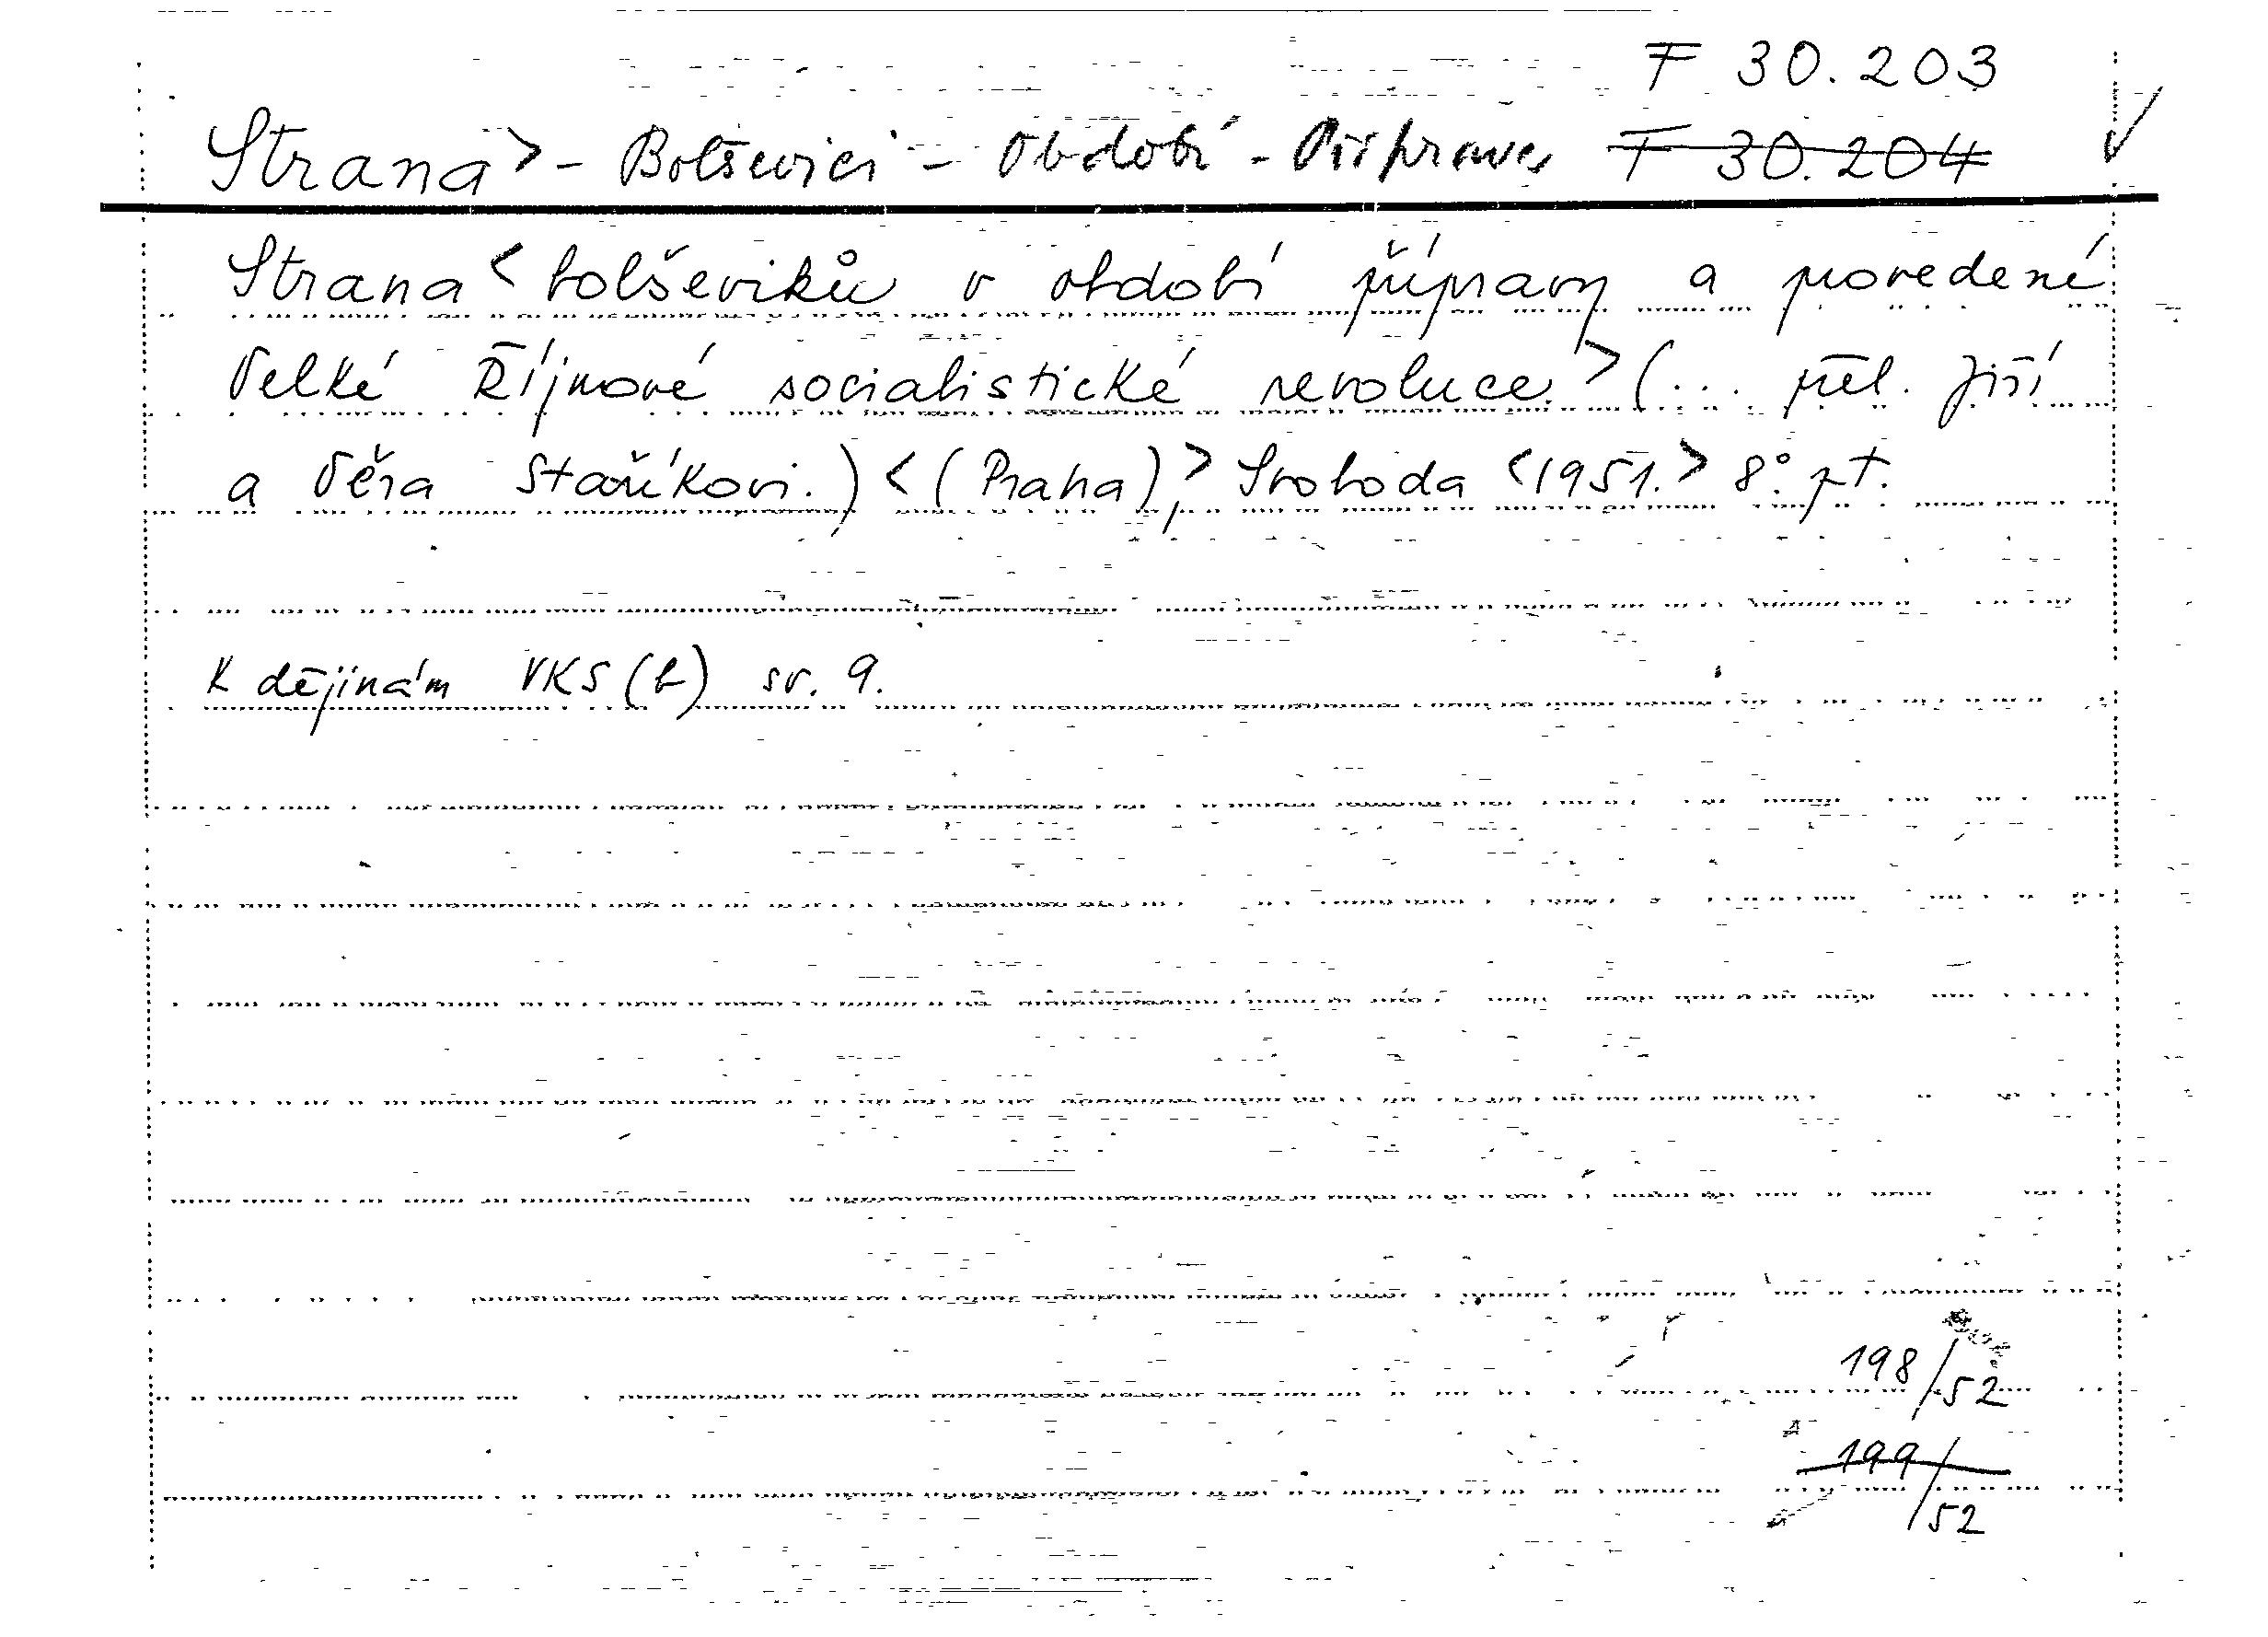 F 30.203
Strana > - Bolševici - Období - Příprava F 30.204
Strana < bolševiků v období přípravy a provedení
Velké Říjnové socialistické revoluce. > (... přel. Jiří
a Věra Staříkovi.) < (Praha), > Svoboda < 1951. > 8°. pt.
K dějinám VKS (b) sv. 9.
198/52
199/52